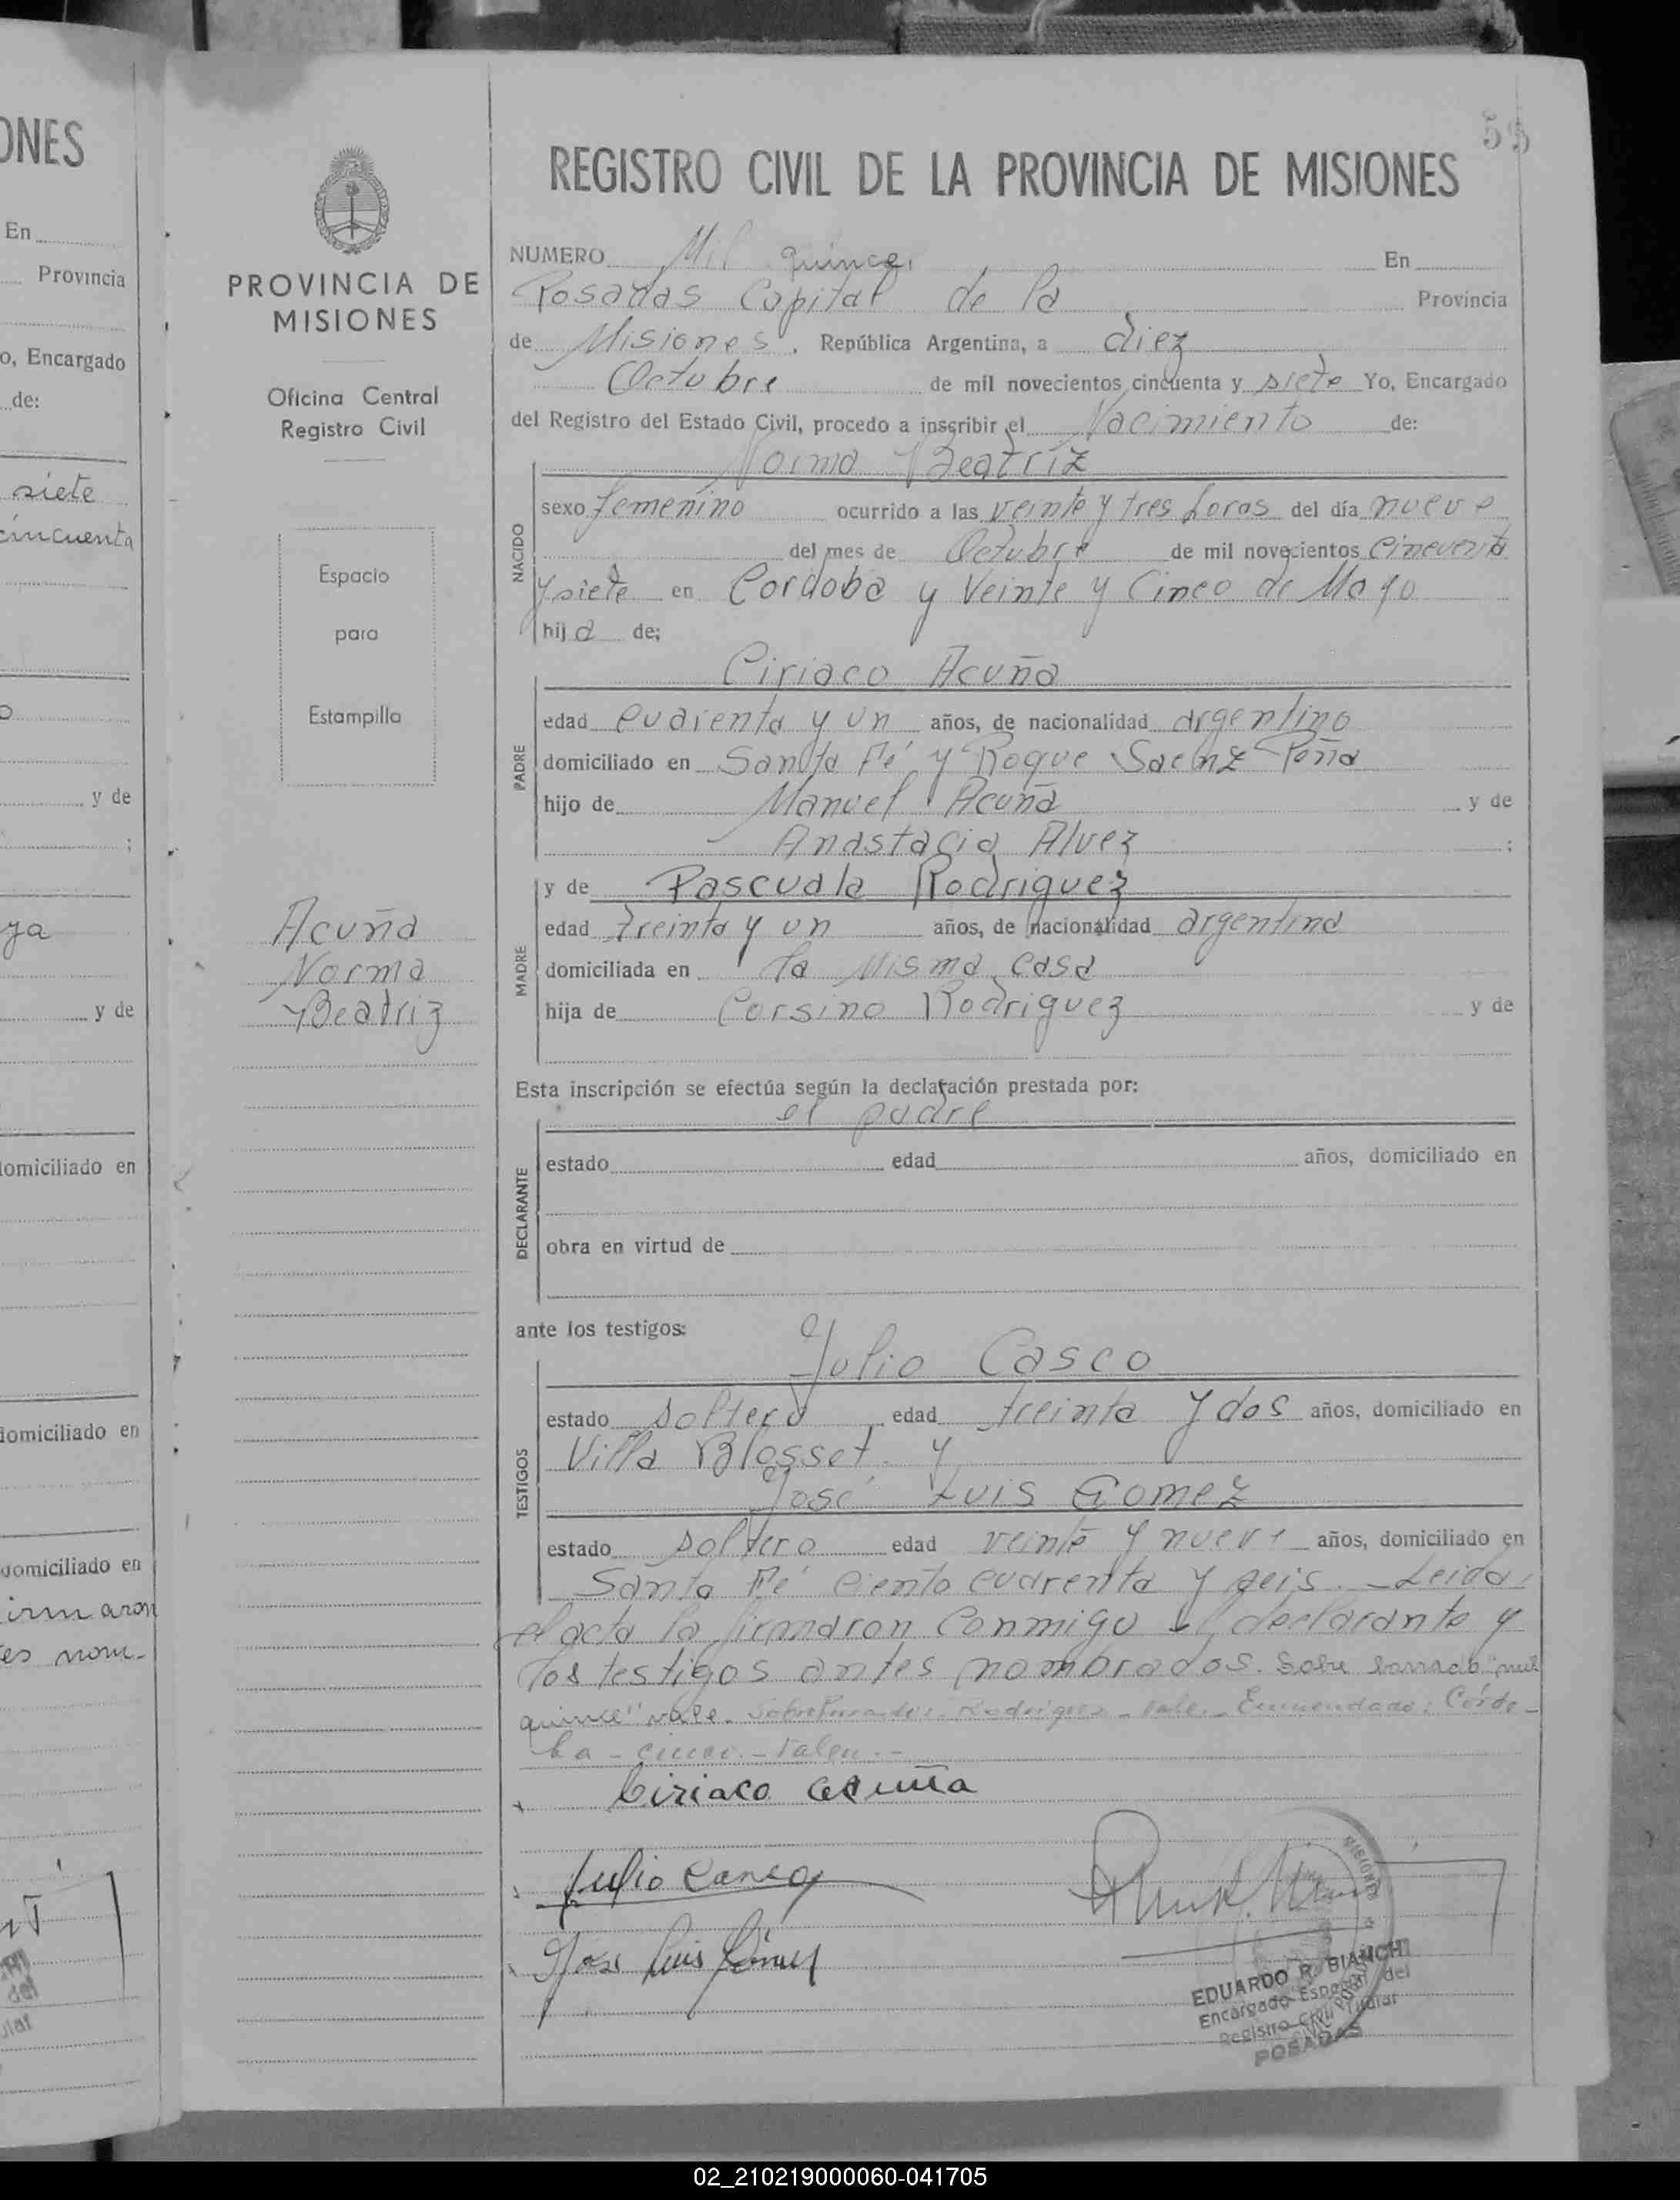 ONES
En
Provincia
o, Encargado
de:
siete
cincuenta
o
y de
;
ya
y de
domiciliado en
domiciliado en
domiciliado en
irmaron
es nom-
del
ular
PROVINCIA DE
MISIONES
Oficina Central
Registro Civil
Espacio
para
Estampilla
Acuña
Norma
Beatriz
REGISTRO CIVIL DE LA PROVINCIA DE MISIONES
NUMERO Mil quince. En
Posadas Capital de la Provincia
de Misiones. República Argentina, a diez
Octubre de mil novecientos cincuenta y siete Yo, Encargado
del Registro del Estado Civil, procedo a inscribir el Nacimiento de:
Norma Beatriz
NACIDO
sexo femenino ocurrido a las veinte y tres horas del día nueve
del mes de Octubre de mil novecientos cincuenta
y siete en Cordoba y Veinte y Cinco de Mayo
hij a de;
Ciriaco Acuña
PADRE
edad cuarenta y un años, de nacionalidad argentino
domiciliado en Santa Fé y Roque Saenz Peña
hijo de Manuel Acuña y de
Anastacia Alvez ;
y de Pascuala Rodriguez
MADRE
edad treinta y un años, de nacionalidad argentina
domiciliada en la Misma casa
hija de Corsino Rodriguez y de
Esta inscripción se efectúa según la declaración prestada por:
el padre
DECLARANTE
estado edad años, domiciliado en
obra en virtud de
ante los testigos:
Julio Casco
TESTIGOS
estado soltero edad treinta y dos años, domiciliado en
Villa Blosset. y
José Luis Gomez
estado soltero edad veinte y nueve años, domiciliado en
Santa Fé ciento cuarenta y seis. - Leida
el acta la firmaron conmigo el declarante y
los testigos antes nombrados. Sobre borrado "mil
quince" vale. Sobreborrado: Rodriguez - Vale. - Enmendado: Córdo-
ba - cinco. - Valen. -
Ciriaco Acuña
Julio Casco
Jose Luis Gómez
MISIONES
EDUARDO R. BIANCHI
Encargado Especial del
Registro Civil Titular
POSADAS
02_210219000060-041705